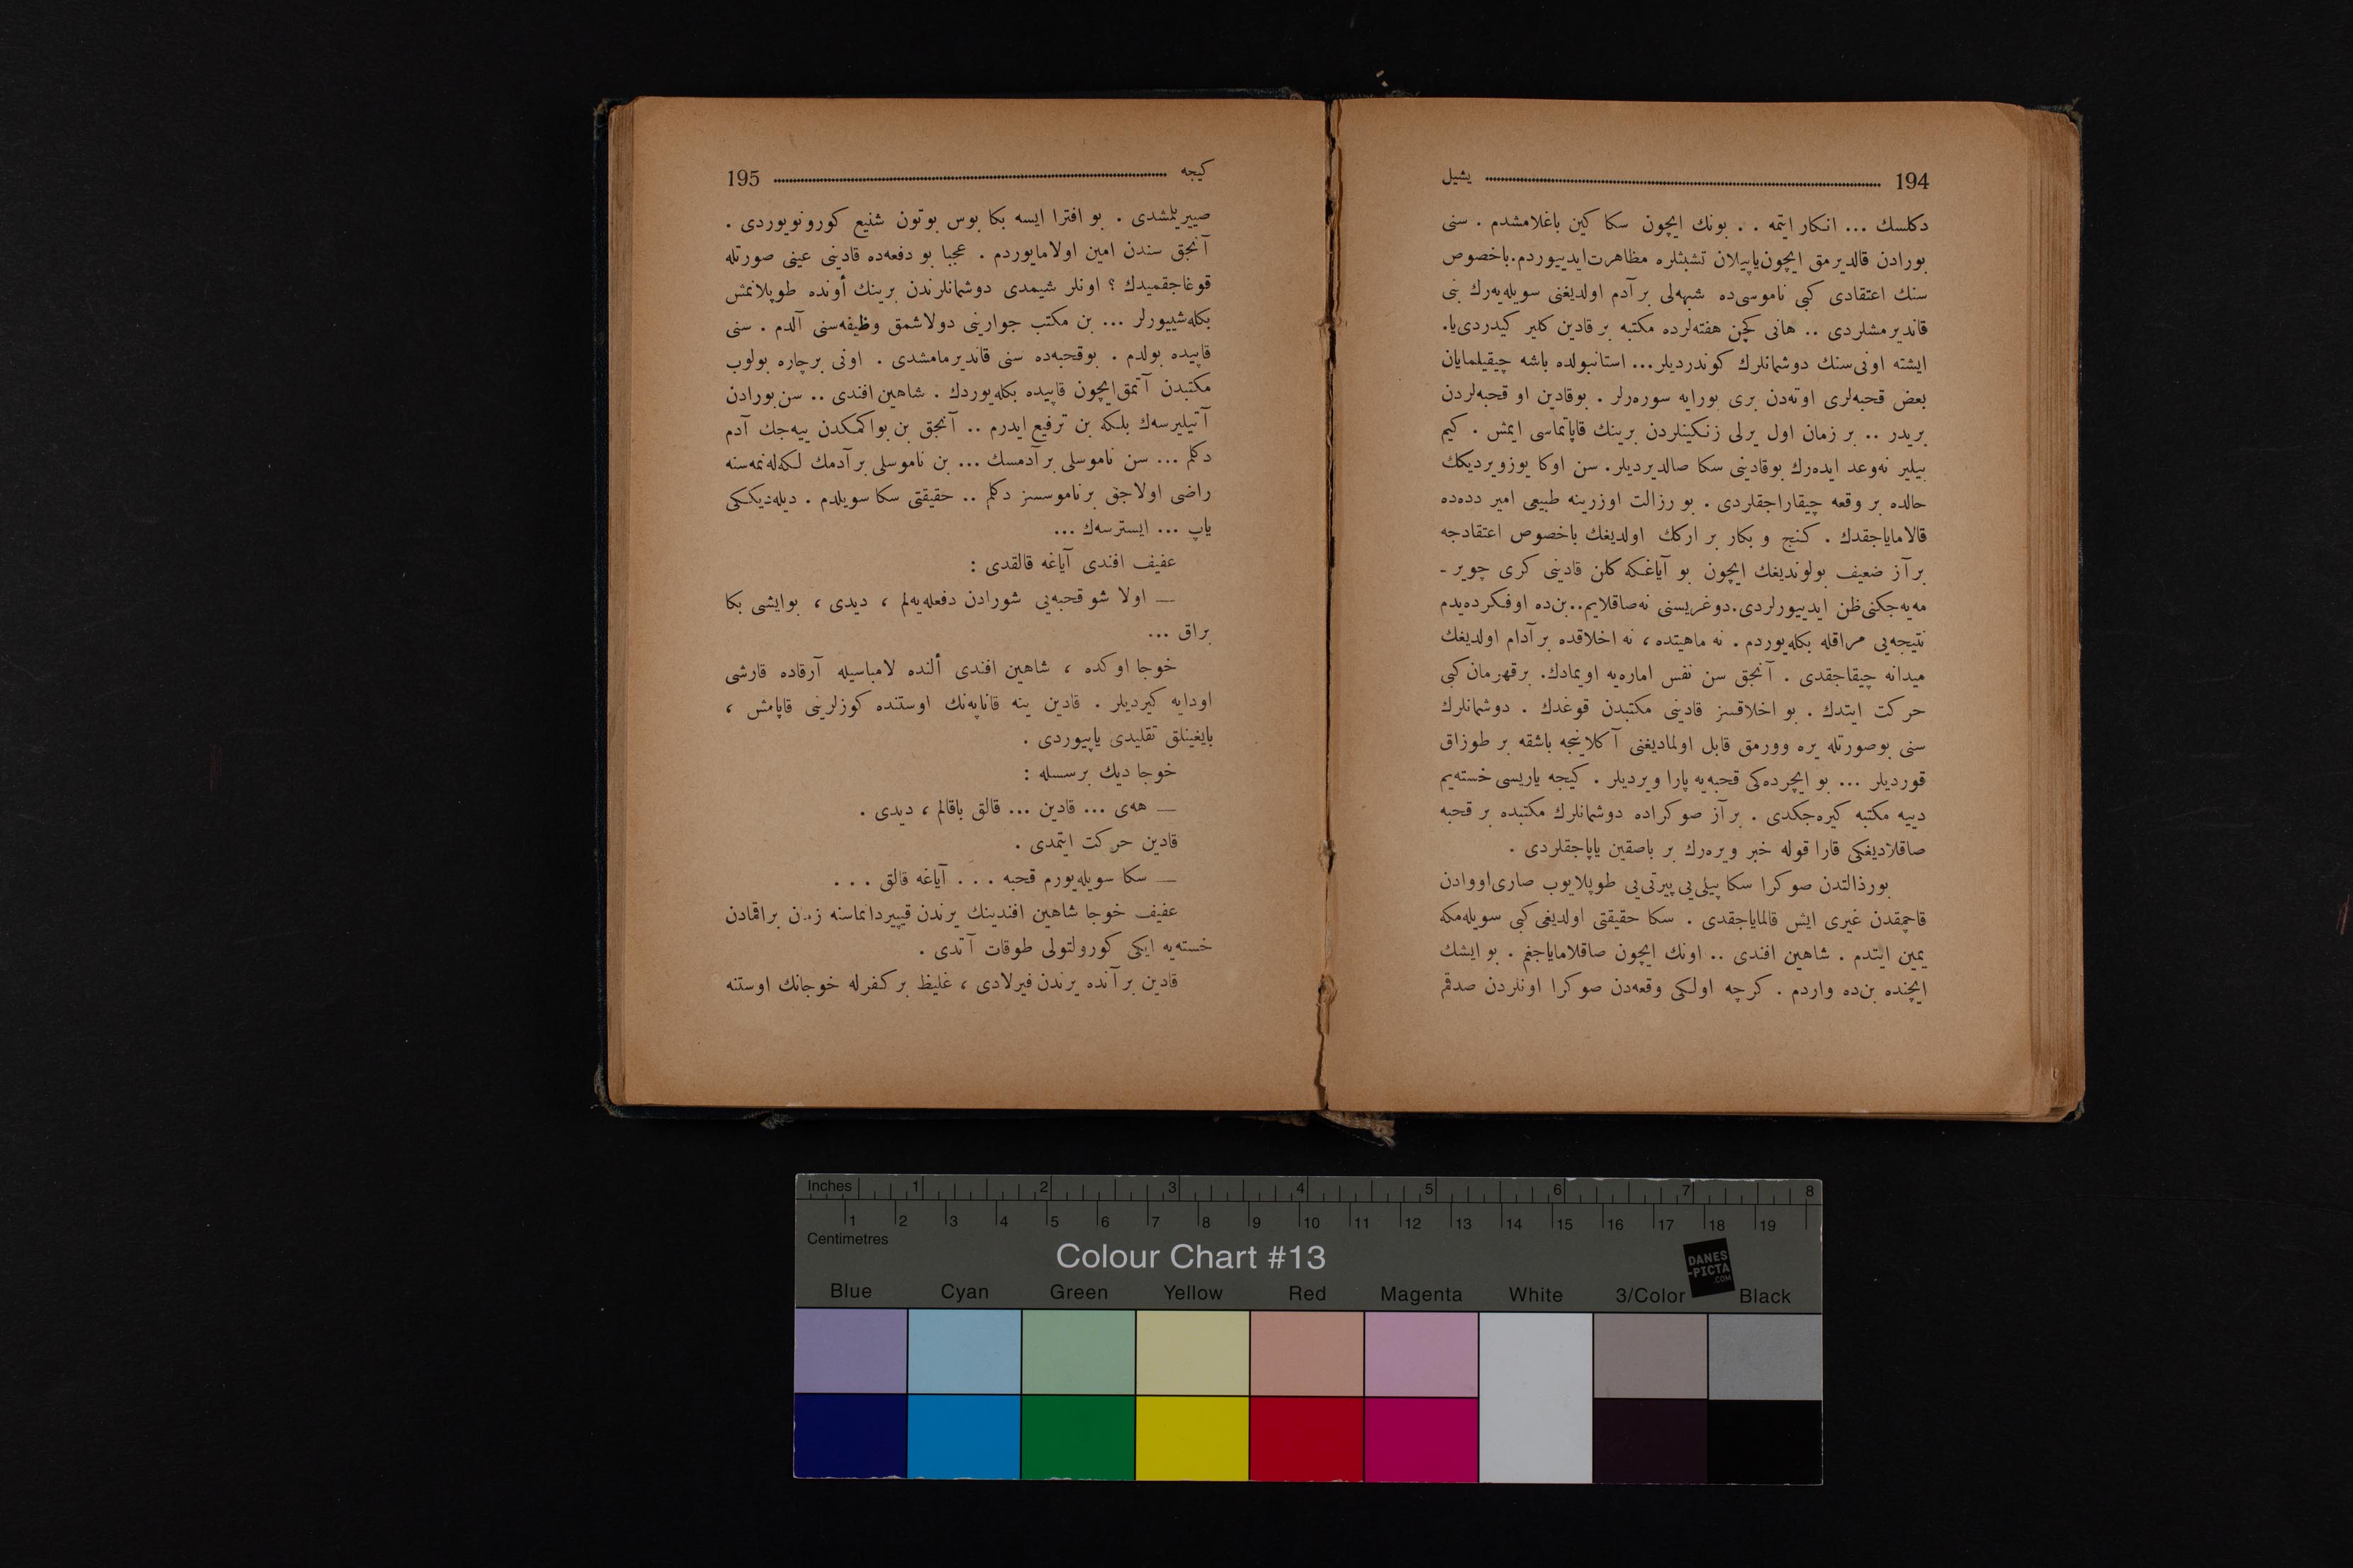 194 یشیل
دكلسك ... انكار ایتمه . . بونك ایچون سكا كین باغلامشدم . سنی
بورادن قالدیرمق ایچون یاپیلان تشبثلره مظاهرت ایدییوردم. باخصوص
سنك اعتقادی كبی ناموسی ده شبهه لی بر آدم اولدیغنی سویله یه رك بنی
قاندیرمشلردی .. هانی كچن هفته لرده مكتبه بر قادین كلیر كیدردی یا.
ایشته اونی سنك دوشمانلرك كوندردیلر... استانبولده باشه چیقیلمایان
بعض قحبه لری اوته دن بری بورایه سوره رلر . بوقادین او قحبه لردن
بریدر .. بر زمان اول یرلی زنكینلردن برینك قاپاتماسی ایمش . كیم
بیلیر نه وعد ایده رك بوقادینی سكا صالدیردیلر. سن اوكا یوز ویردیكك
حالده بر وقعه چیقاراجقلردی . بو رزالت اوزرینه طبیعی امیر دده ده
قالامایاجقدك . كنج و بكار بر اركك اولدیغك باخصوص اعتقادجه
بر آز ضعیف بولوندیغك ایچون بو آیاغكه كلن قادینی كری چویر -
مه یه جكنی ظن ایدییورلردی. دوغریسنی نه صاقلایم.. بن ده اوفكرده یدم
نتیجه یی مراقله بكله یوردم . نه ماهیتده ، نه اخلاقده بر آدام اولدیغك
میدانه چیقاجقدی . آنجق سن نفس اماره یه اویمادك. بر قهرمان كبی
حركت ایتدك . بو اخلاقسز قادینی مكتبدن قوغدك . دوشمانلرك
سنی بوصورتله یره وورمق قابل اولمادیغنی آكلاینجه باشقه بر طوزاق
قوردیلر ... بو ایچرده كی قحبه یه پارا ویردیلر . كیجه یاریسی خسته یم
دییه مكتبه كیره جكدی . بر آز صوكراده دوشمانلرك مكتبده بر قحبه
صاقلادیغكی قارا قوله خبر ویره رك بر باصقین یاپاجقلردی .
بورذالتدن صوكرا سكا پیلی یی پیرتی یی طوپلایوب صاری اووادن
قاچمقدن غیری ایش قالمایاجقدی . سكا حقیقتی اولدیغی كبی سویله مكه
یمین ایتدم . شاهین افندی .. اونك ایچون صاقلامایاجغم . بو ایشك
ایچنده بن ده واردم . كرچه اولكی وقعه دن صوكرا اونلردن صدقم
كیجه 195
صییریلمشدی . بو افترا ایسه بكا بوس بوتون شنیع كورونویوردی .
آنجق سندن امین اولامایوردم . عجبا بو دفعه ده قادینی عینی صورتله
قوغاجقمیدك ؟ اونلر شیمدی دوشمانلرندن برینك أونده طوپلانمش
بكله شییورلر ... بن مكتب جوارینی دولاشمق وظیفه سنی آلدم . سنی
قاپیده بولدم . بوقحبه ده سنی قاندیرمامشدی . اونی برچاره بولوب
مكتبدن آتمق ایچون قاپیده بكله یوردك . شاهین افندی .. سن بورادن
آتیلیرسه ك بلكه بن ترفیع ایدرم .. آنجق بن بو اكمكدن ییه جك آدم
دكلم ... سن ناموسلی بر آدمسك ... بن ناموسلی بر آدمك لكه له نمه سنه
راضی اولاجق بر ناموسسز دكلم .. حقیقتی سكا سویلدم . دیله دیككی
یاپ ... ایسترسه ك ...
عفیف افندی آیاغه قالقدی :
— اولا شو قحبه یی شورادن دفعله یه لم ، دیدی ، بوایشی بكا
براق ...
خوجا اوكده ، شاهین افندی ألنده لامباسیله آرقاده قارشی
اودایه كیردیلر . قادین ینه قاناپه نك اوستنده كوزلرینی قاپامش ،
بایغینلق تقلیدی یاپیوردی .
خوجا دیك بر سسله :
— هه ی ... قادین ... قالق باقالم ، دیدی .
قادین حركت ایتمدی .
— سكا سویله یورم قحبه . . . آیاغه قالق . . .
عفیف خوجا شاهین افندینك یرندن قیپیردانماسنه زمان براقمادن
خسته یه ایكی كورولتولی طوقات آتدی .
قادین بر آنده یرندن فیرلادی ، غلیظ بر كفرله خوجانك اوستنه
Inches 1 2 3 4 5 6 7 8
1 2 3 4 5 6 7 8 9 10 11 12 13 14 15 16 17 18 19
Centimetres
Colour Chart #13
DANES
-PICTA
.COM
Blue Cyan Green Yellow Red Magenta White 3/Color Black